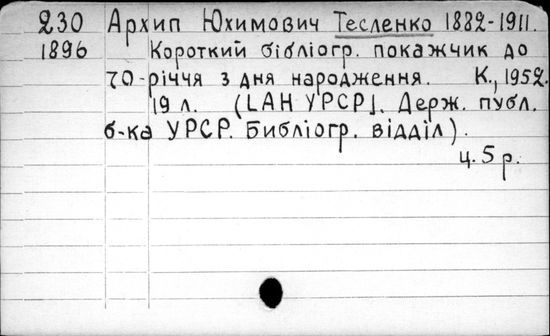 230 Архип Юхимович Тесленко 1882-1911.
1896 Короткий бібліогр. покажчик до
70-річчя з дня народження. К., 1952.
19 л. (LАН УРСР]. Держ. публ.
б-ка УРСР. Библіогр. відділ).
ц. 5 р.